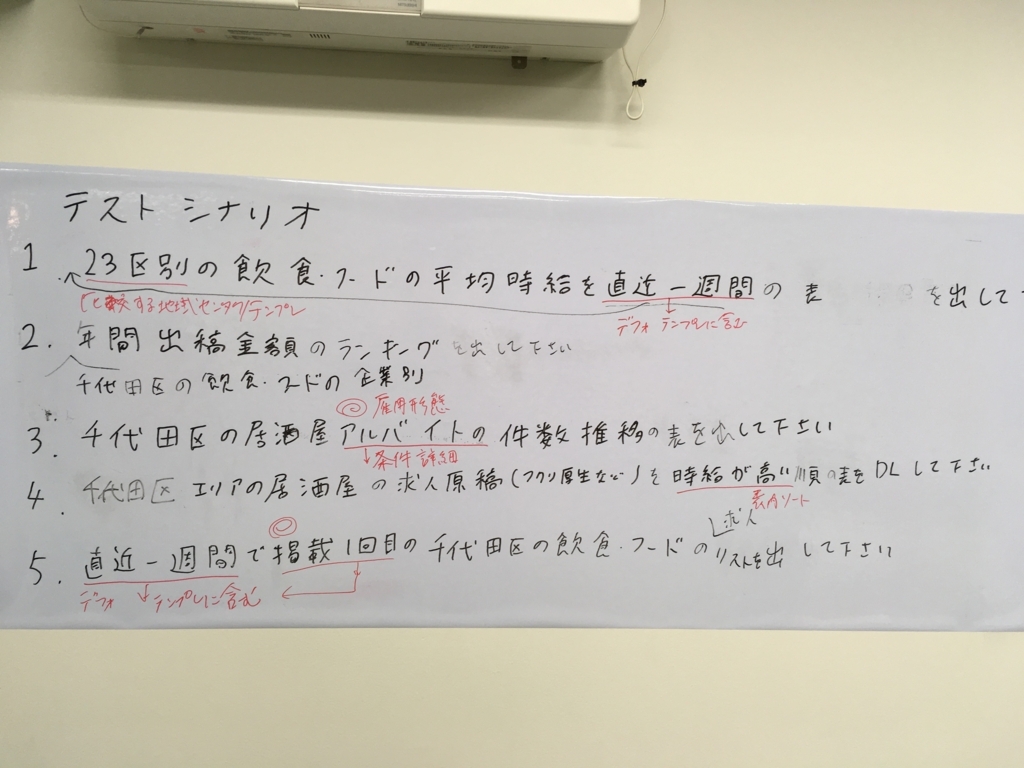 テストシナリオ
1. 23区別の飲食・フードの平均時給を直近一週間の 表 を出して
比較する地域センタク/テンプレ
デフォ テンプレに含む
2. 年間出稿金額のランキングを出して下さい
千代田区の飲食・フードの企業別
◎ 雇用形態
3. 千代田区の居酒屋アルバイトの件数推移の表を出して下さい
↓条件詳細
4. 千代田区エリアの居酒屋の求人原稿(フクリ厚生など)を時給が高い順の表をDLして下さい
表内ソート
◎
求人
5. 直近一週間で掲載1回目の千代田区の飲食・フードのリストを出して下さい
デフォ ↓テンプレに含む